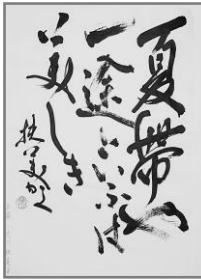 夏帯や
一途といふは
美しき